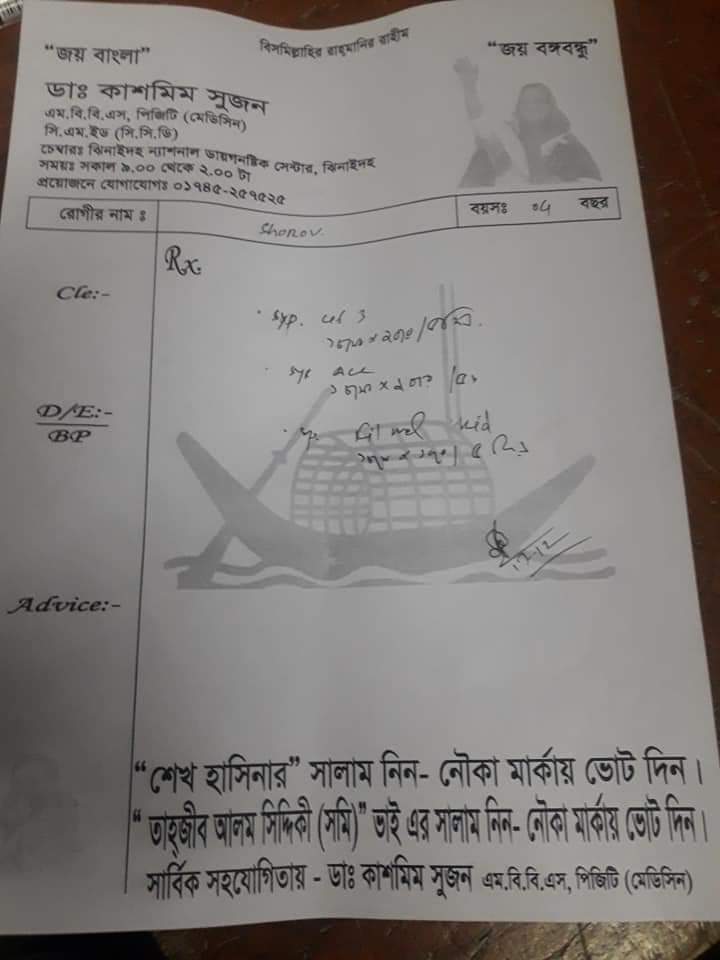 বিসমিল্লাহির রাহমানির রাহীম
“জয় বাংলা”
“জয় বঙ্গবন্ধু”
ডাঃ কাশমিম সুজন
এম.বি.বি.এস, পিজিটি (মেডিসিন)
সি.এম.ইউ (সি.সি.ডি)
চেম্বারঃ ঝিনাইদহ ন্যাশনাল ডায়াগনষ্টিক সেন্টার, ঝিনাইদহ
সময়ঃ সকাল ৯.০০ থেকে ২.০০ টা
প্রয়োজনে যোগাযোগঃ ০১৭৪৫-২৫৭৫২৫
রোগীর নাম ঃ Shorov. বয়সঃ বছর
Rx.
Cle:-
syp.
syp Ace
D/E:-
BP
kid
Advice:-
“শেখ হাসিনার” সালাম নিন- নৌকা মার্কায় ভোট দিন।
“তাহ্জীব আলম সিদ্দিকী (সমি)” ভাই এর সালাম নিন- নৌকা মার্কায় ভোট দিন।
সার্বিক সহযোগিতায় - ডাঃ কাশমিম সুজন এম.বি.বি.এস, পিজিটি (মেডিসিন)